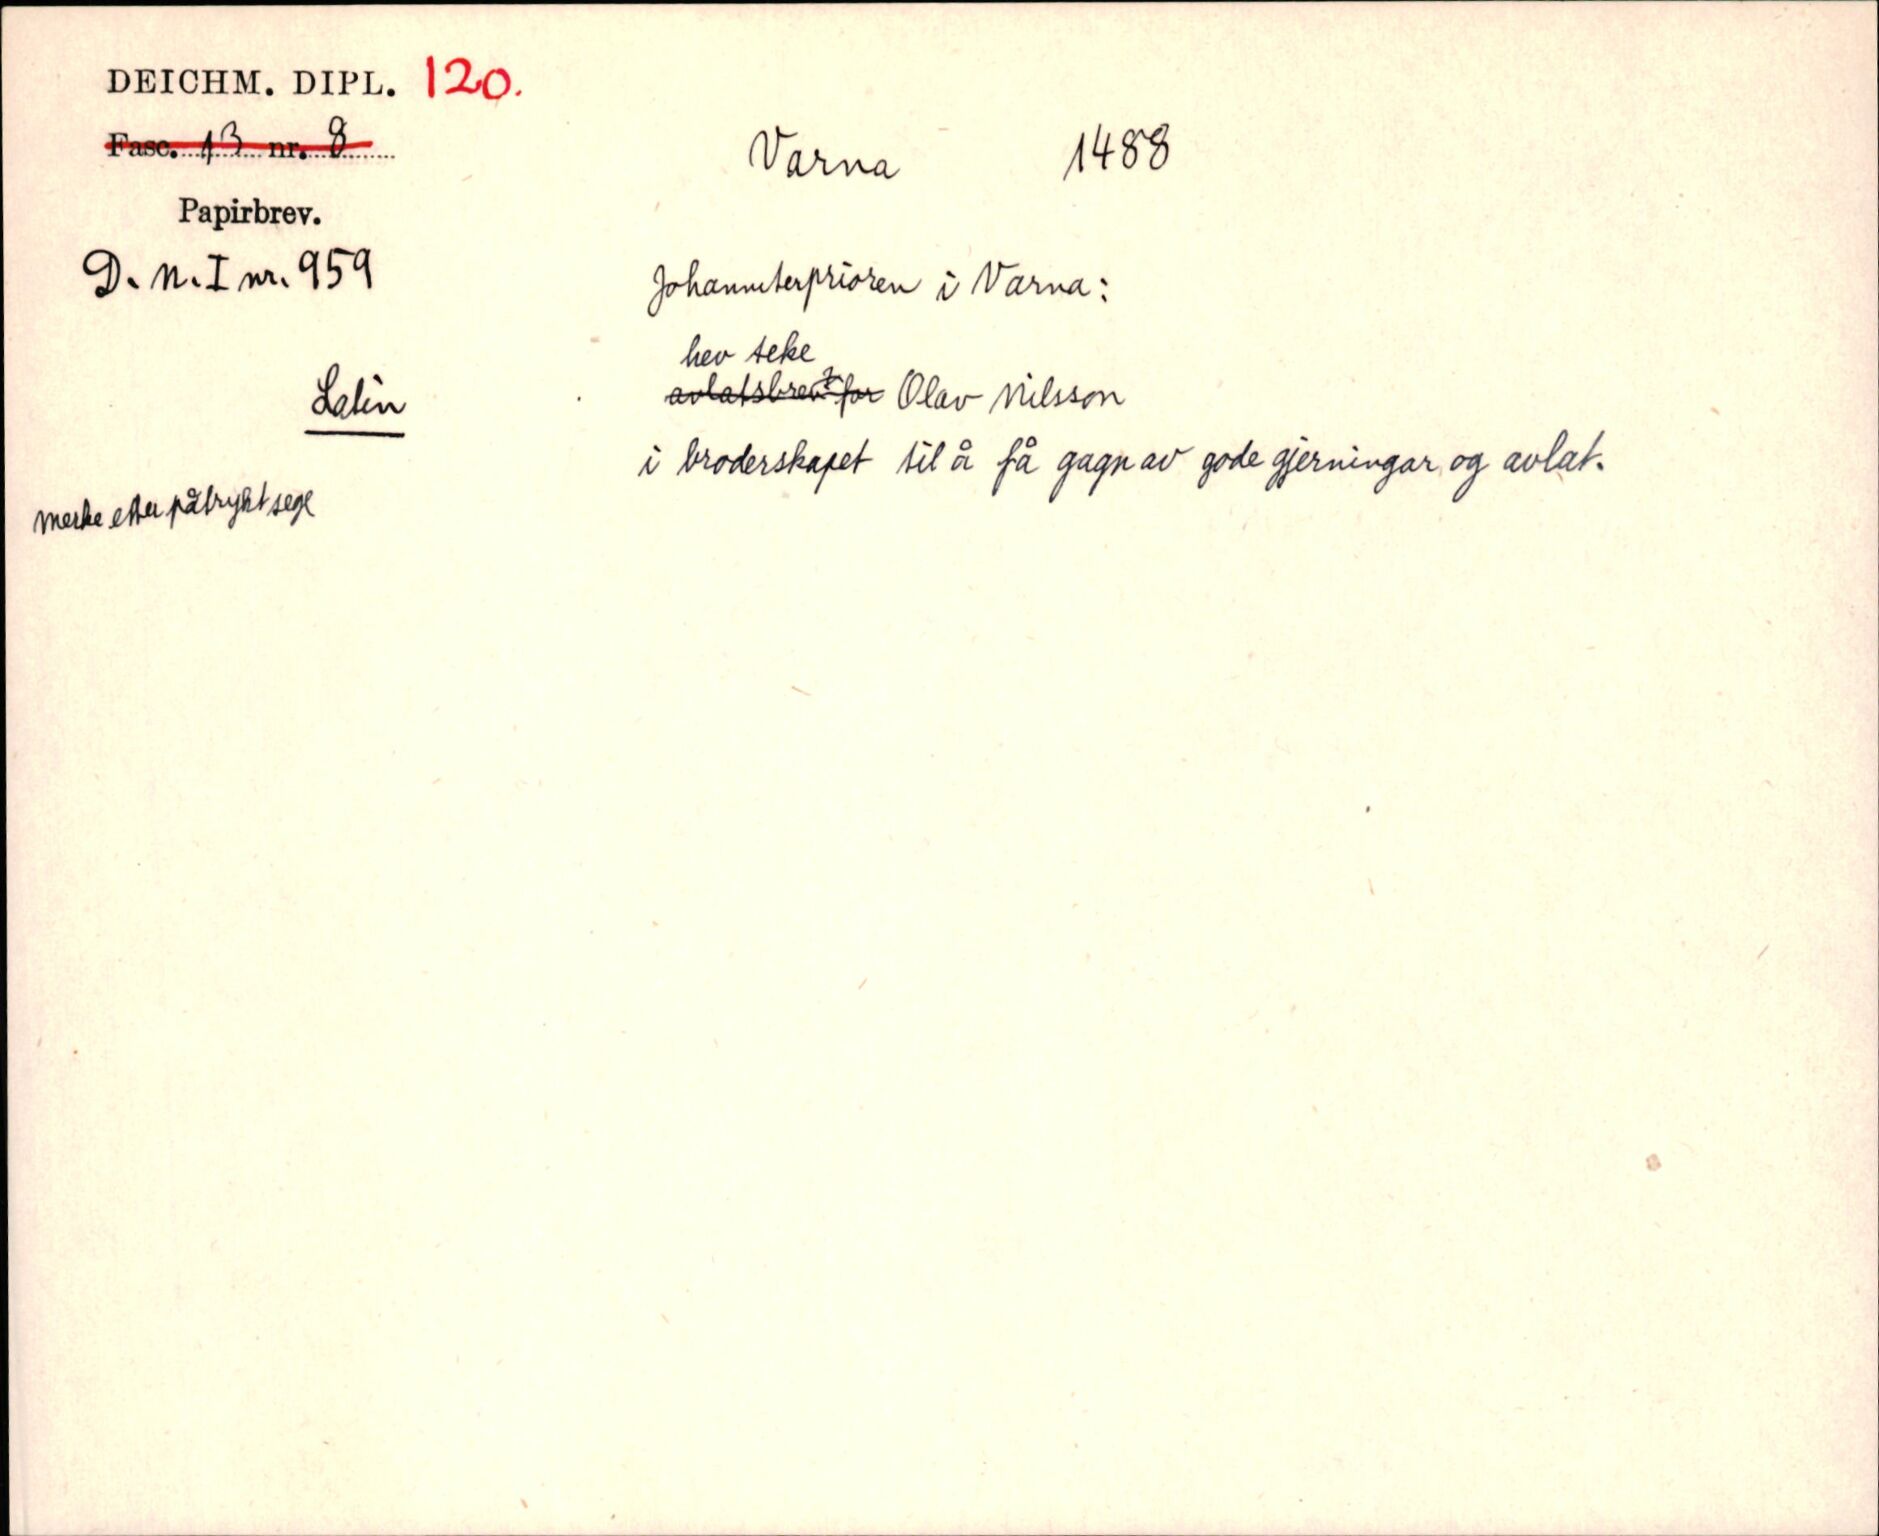 DEICHM. DIPL. 120.
Fasc. 13 nr. 8
Papirbrev.
D. N. I nr. 959
Latin
Merke etter påtrykt segl
Varna 1488
Johanniterprioren i Varna:
hev teke
avlatsbrev for Olav Nilsson
i broderskapet til å få gagn av gode gjerningar og avlat.